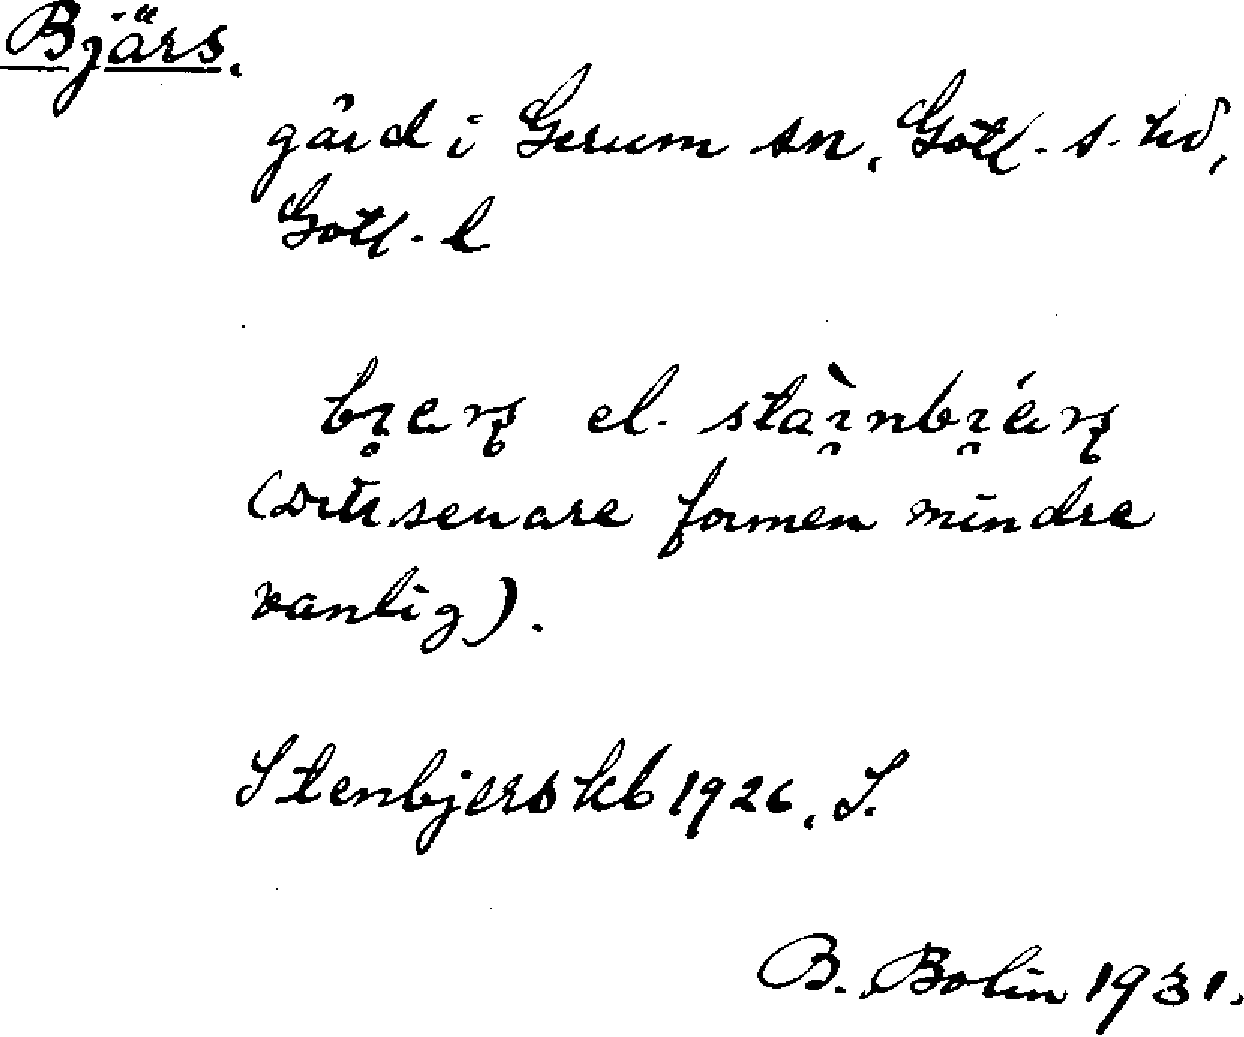 Bjärs.
gård i Gerum sn, Gotl. s. hd,
Gotl. l
el.
(Den senare formen mindre
vanlig).
Stenbjers kb 1926. S.
B. Bolin 1931.